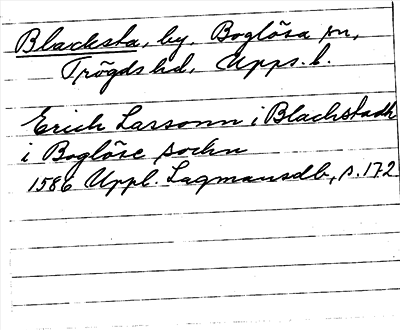 Blacksta, by, Boglösa sn,
Trögds hd, Upps. l.
Erich Larsonn i Blachstadh
i Boglöse sochn
1586 Uppl. Lagmansdb, s. 172